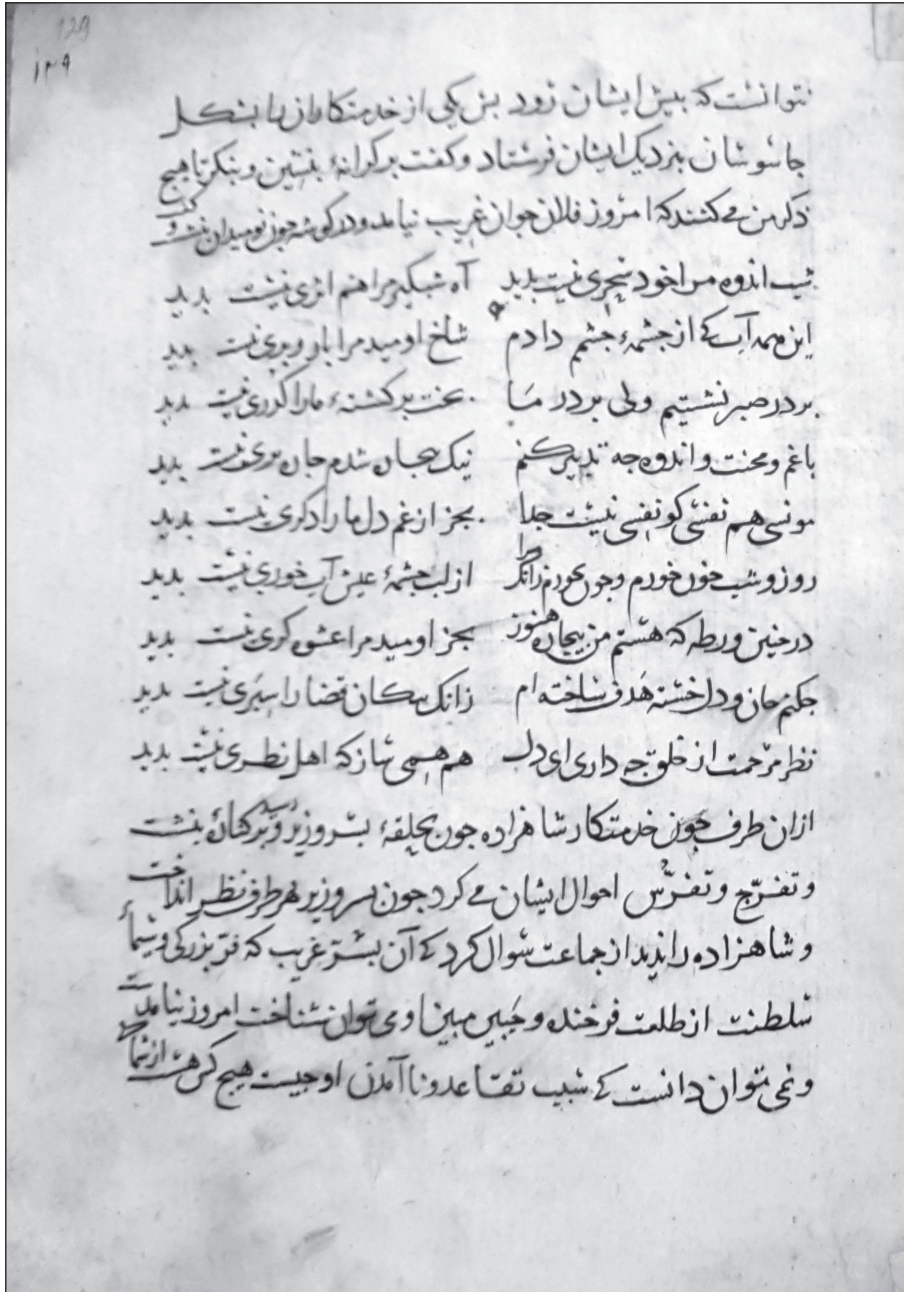 129
۱۲۹
نتوانست که بیش ایشان رود بس یکی از خدمتکاران را بشکل
جاسوسان بنزدیک ایشان فرستاد و کفت بر کرانهٔ بنشین و بنکر تا هیچ
ذکر من می کنند که امروز فلان جوان غریب نیامد و در کوشه جون نومیدان بنشست و کفت
شب اندوه مرا خود سحری نیست بدید آه شبکیر مرا هم اثری نیست بدید
این همه آب که از جشمهٔ جشم دادم شاخ اومید مرا بار و بری نیست بدید
بر در صبر نشستیم ولی بر در ما بخت برکشتهٔ مارا کذری نیست بدید
با غم و محنت و اندوه جه تدبیر کنم نیک بجان شدم جان بری نیست بدید
مونسی هم نفسی کو نفسی نیست جدا بجز از غم دل ما را دکری نیست بدید
روز و شب خون خورم و جون نخورم زانک مرا از لب جشمهٔ عیش آب خوری نیست بدید
در جنین ورطه که هستم من بیجان هنوز بجز اومید مرا عشوه کری نیست بدید
جکنم جان و دل خسته هدف ساخته ام زانک بیکان قضا را سبری نیست بدید
نظر مرحمت از خلق جه داری ای دل هم همی ساز که اهل نظری نیست بدید
ازان طرف جون خدمتکار شاهزاده جون بحلقهٔ بسر وزیر رسید و بر کنارهٔ بنشست
و تفرّج و تفرّس احوال ایشان می کرد جون بسر وزیر بهر طرف نظر انداخت
و شاهزاده را ندید از جماعت سوال کرد که آن بسر غریب که فرّ بزرکی و سیمأ
سلطنت از طلعت فرخنده و جبین مبین او می توان شناخت امروز نیامدست
و نمی توان دانست که سبب تقاعد و نا آمدن او جیست هیج کس هست از شما